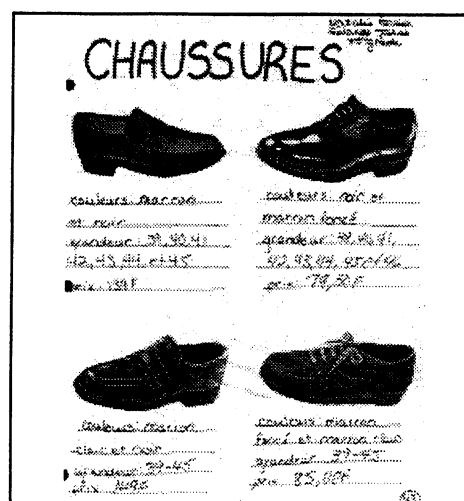 CHAUSSURES
couleurs marron
et noir
grandeur: 39, 40, 41
42, 43, 44 et 45
prix:
couleurs noir et
marron foncé
grandeur: 39, 40, 41,
42, 43, 44, 45 et
prix: 79,50F
couleurs marron
clair et noir
grandeur 39-45
prix
couleurs marron
foncé et marron clair
grandeur 39-45
prix 85,00F